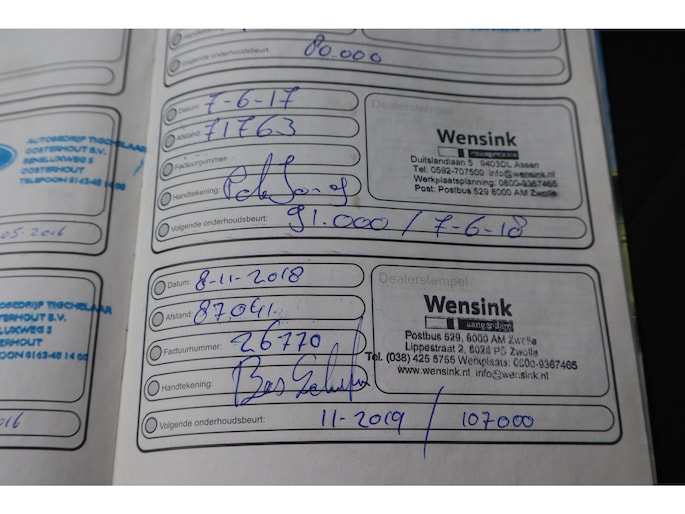 Volgende onderhoudsbeurt: 80.000
AUTOBEDRIJF TIGCHELAAR
OOSTERHOUT B.V.
BENELUXWEG 5
OOSTERHOUT
TELEFOON 0162-48 14 00
05-2016
TIGCHELAAR
OOSTERHOUT B.V.
BENELUXWEG 5
OOSTERHOUT
TELEFOON 0162-48 14 00
Datum: 7-6-17
Afstand: 71763
Factuurnummer:
Handtekening:
Volgende onderhoudsbeurt: 91.000 / 7-6-18
Dealerstempel
Wensink
Duitslandlaan 5 9403DL Assen
Tel: 0592-707500 info@wensink.nl
Werkplaatsplanning: 0800-9367465
Post: Postbus 529 8000 AM Zwolle
Datum: 8-11-2018
Afstand: 87041
Factuurnummer: 26770
Handtekening:
Volgende onderhoudsbeurt: 11-2019 / 107000
Dealerstempel
Wensink
aangenaam
Postbus 529, 8000 AM Zwolle
Lippestraat 2, 8028 PS Zwolle
Tel. (038) 425 5755 Werkplaats: 0800-9367465
www.wensink.nl info@wensink.nl